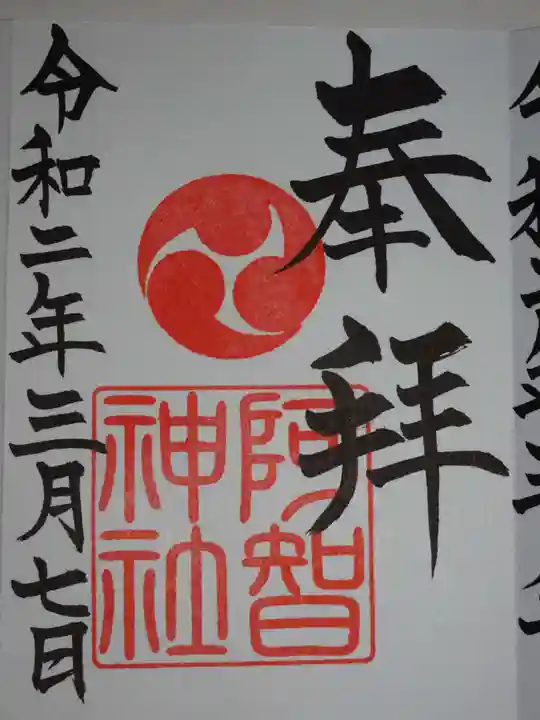 奉拝
阿智
神社
令和二年三月七日